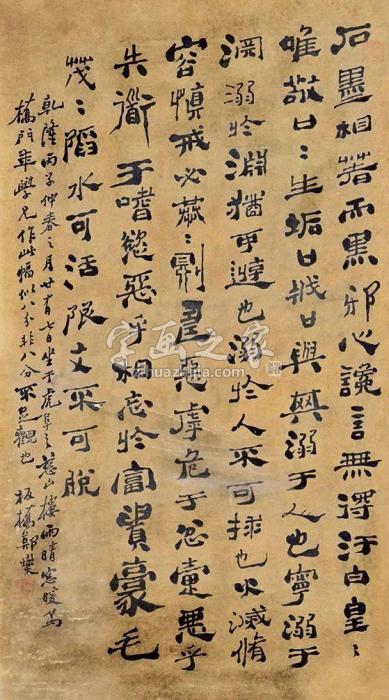 石墨相著而黑邪心讒言無得汙白皇〻
唯敬口〻生垢口戕口與其溺于人也寧溺于
淵溺於淵猶可遊也溺於人不可捄也火滅脩
容慎戒必恭〻則壽惡虖危于忿疐惡乎
失道于嗜慾惡乎相忘於富貴豪毛
茂〻陷水可活陷文不可脫
乾隆丙子仲春之月廿有七日坐于虎阜之山樓雨晴寒暖為
年學兄作此幅似八分非八分不足觀也 板橋鄭燮
字画之家